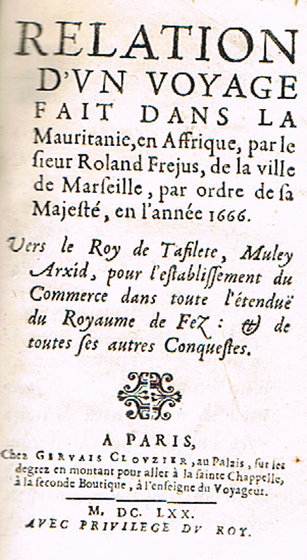 RELATION
D'VN VOYAGE
FAIT DANS LA
Mauritanie, en Affrique, par le
ſieur Roland Frejus, de la ville
de Marſeille, par ordre de ſa
Majeſté, en l'année 1666.
Vers le Roy de Tafilete, Muley
Arxid, pour l'eſtabliſſement du
Commerce dans toute l'étenduë
du Royaume de Fez: & de
toutes ſes autres Conqueſtes.
A PARIS,
Chez GERVAIS CLOVZIER, au Palais, ſur les
degrez en montant pour aller à la ſainte Chappelle,
à la ſeconde Boutique, à l'enſeigne du Voyageur.
M. DC. LXX.
AVEC PRIVILEGE DV ROY.